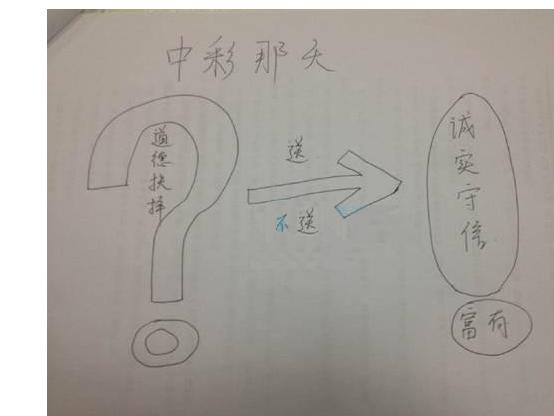 中彩那天
道德抉择
送
不送
诚实守信
富有